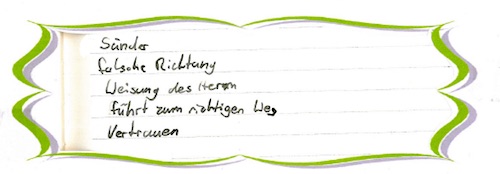 Sünder
falsche Richtung
Weisung des Herrn
führt zum richtigen Weg
Vertrauen